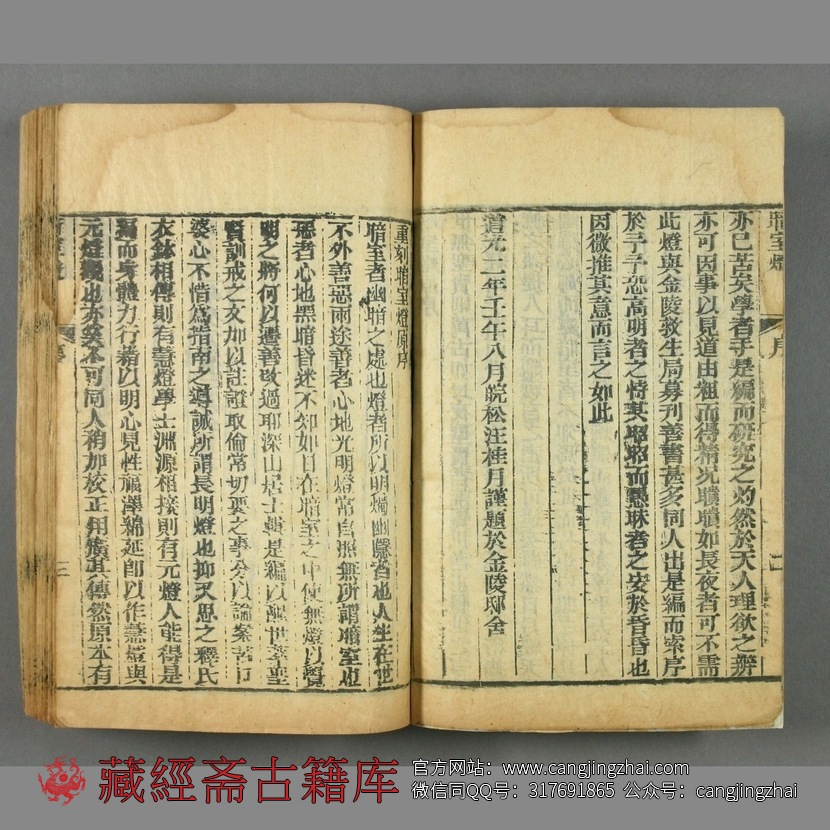 暗室燈
序
二
亦已苦矣學者于是編而研究之灼然於天人理欲之辨
亦可因事以見道由粗而得精況聵聵如長夜者可不需
此燈與金陵救生局募刊善書甚多同人出是編而索序
於予予恐高明者之恃其昭昭而愚昧者之安於昏昏也
因微推其意而言之如此
當元二年壬午八月皖松汪桂月謹題於金陵邸舍
重刻暗室燈原序
暗室者幽暗之處也燈者所以明燭幽隱者也人生在世
不外善惡兩途善者心地光明燈常自照無所謂暗室也
惡者心地黑暗昏迷不知如日在暗室之中使無燈以覺
明之將何以遷善改過耶深山居士輯是編以醒世萃聖
賢訓戒之文加以註證取倫常切要之事分以論案苦口
婆心不惜為指南之導誠所謂長明燈也抑又思之釋氏
衣鉢相傳則有慧燈學士淵源相接則有元燈人能得是
編而身體力行藉以明心見性福澤綿延即以作慧燈與
元燈觀也亦奚不可同人稍加校正用廣其傳然原本有
三
藏經斋古籍库
官方网站：www.cangjingzhai.com
微信同QQ号：317691865 公众号：cangjingzhai